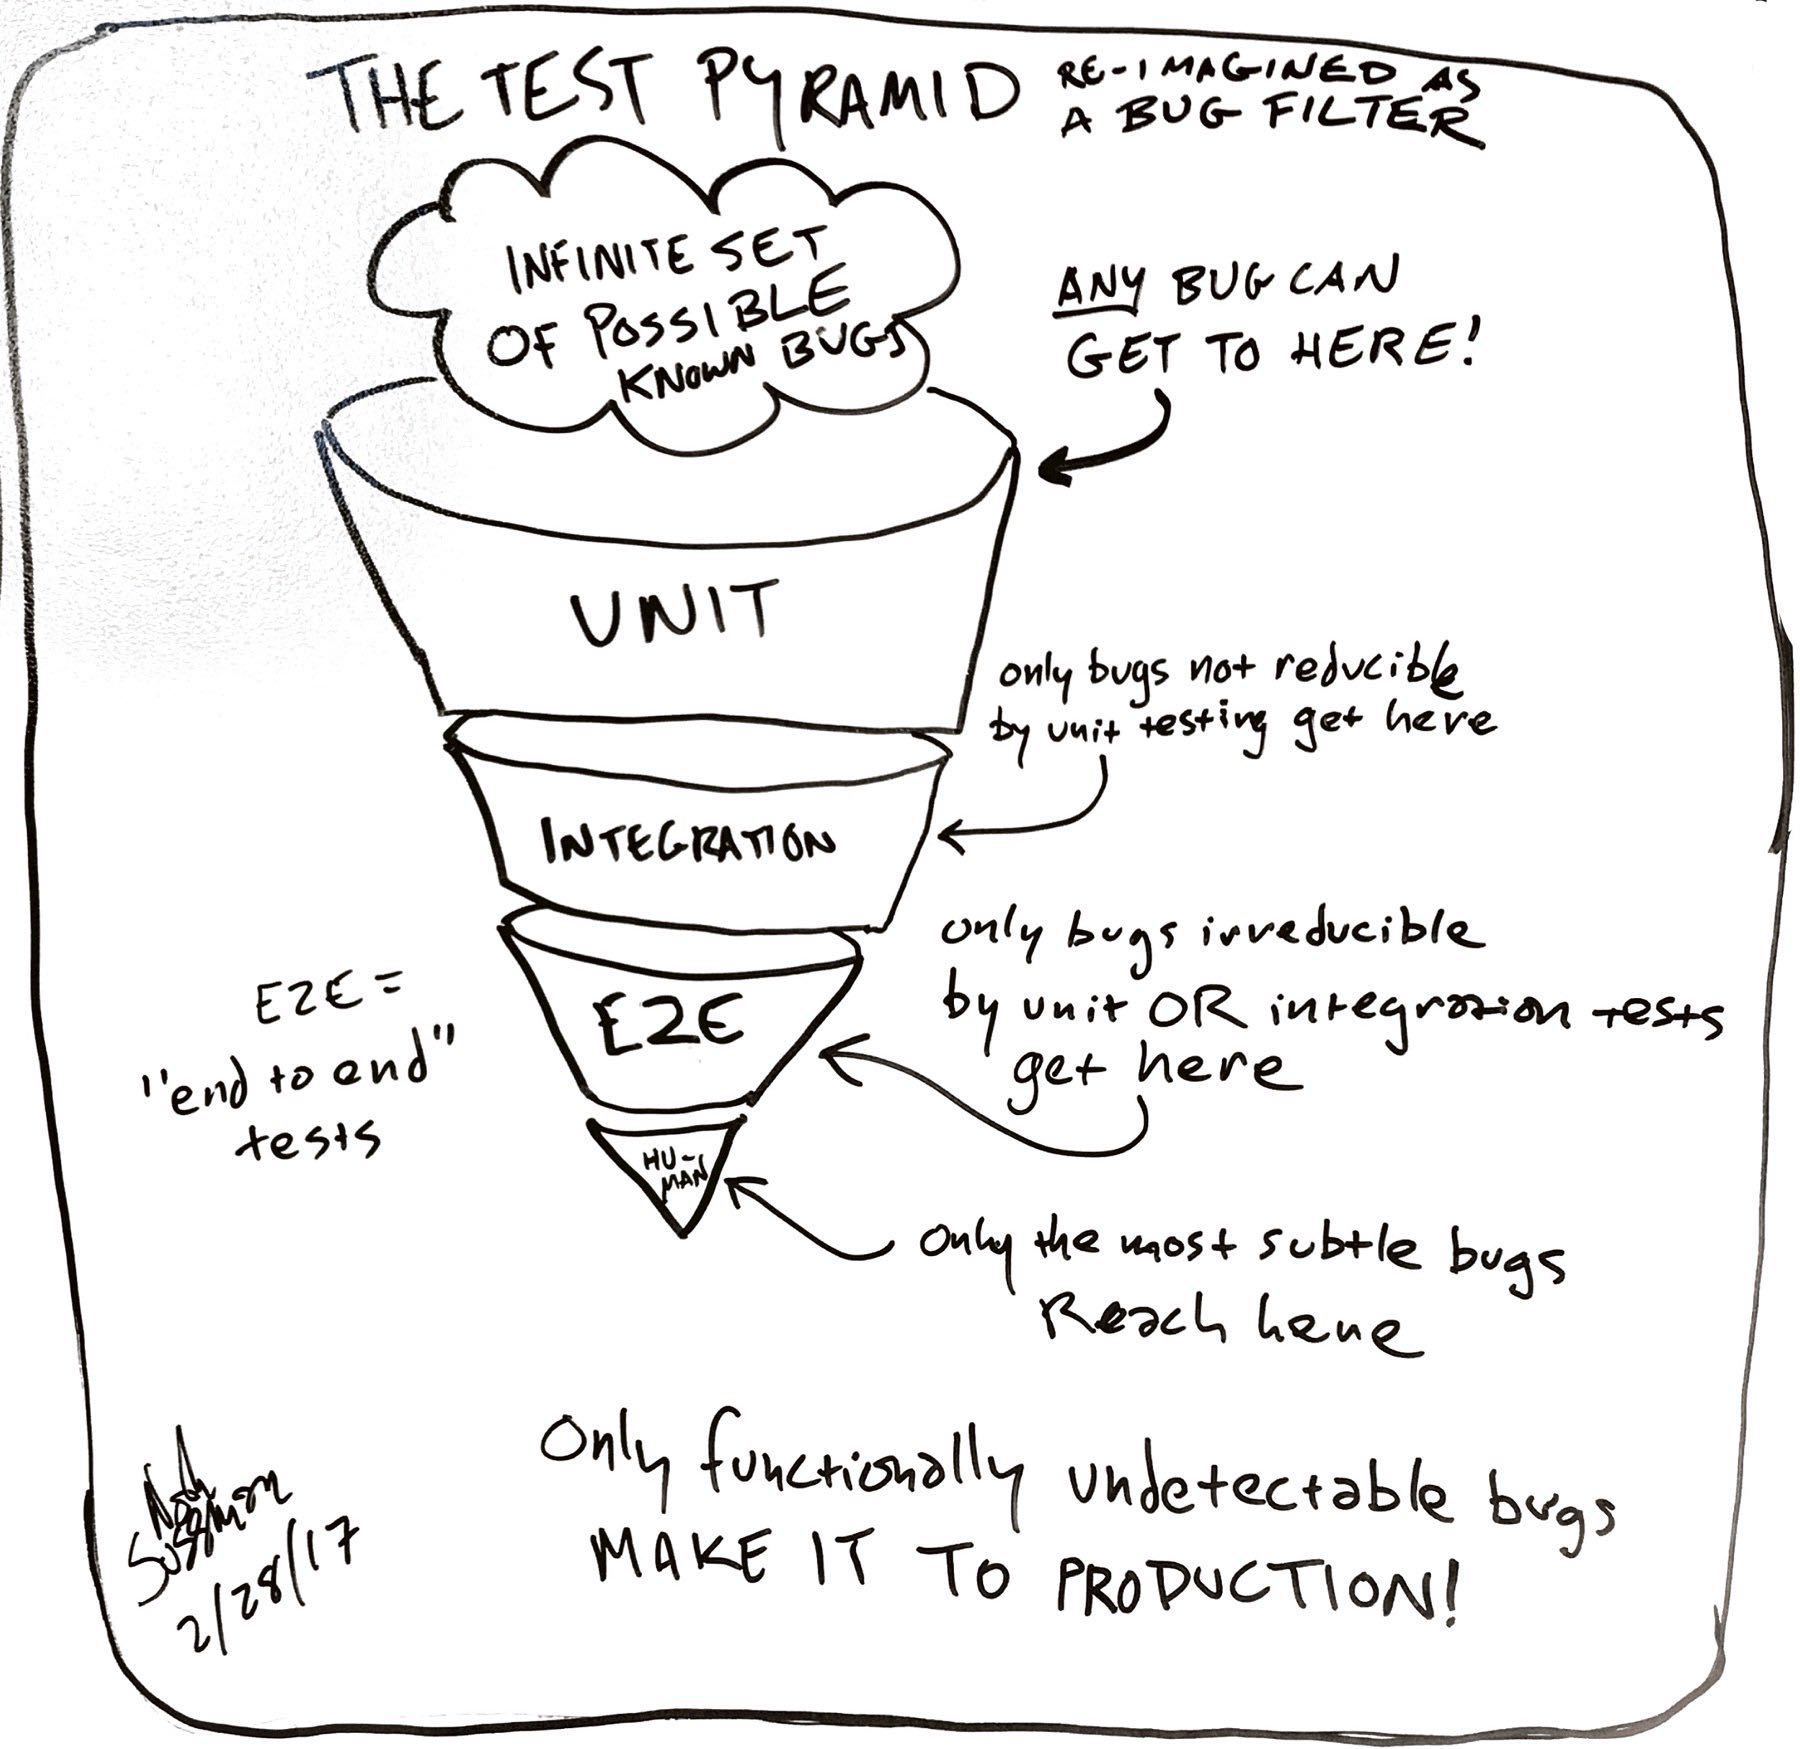 THE TEST PYRAMID RE-IMAGINED AS
A BUG FILTER
INFINITE SET
OF POSSIBLE
KNOWN BUGS
ANY BUG CAN
GET TO HERE!
UNIT
only bugs not reducible
by unit testing get here
INTEGRATION
only bugs irreducible
by unit OR integration tests
get here
E2E =
"end to end"
tests
E2E
HU-
MAN
Only the most subtle bugs
Reach here
Only functionally undetectable bugs
MAKE IT TO PRODUCTION!
Noah
Sussman
2/28/17